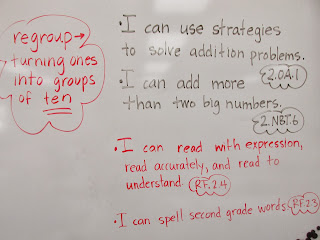 regroup→
turning ones
into groups
of ten
• I can use strategies
to solve addition problems.
2.OA.1
• I can add more
than two big numbers.
2.NBT.6
• I can read with expression,
read accurately, and read to
understand. RF.2.4
• I can spell second grade words. RF.2.3